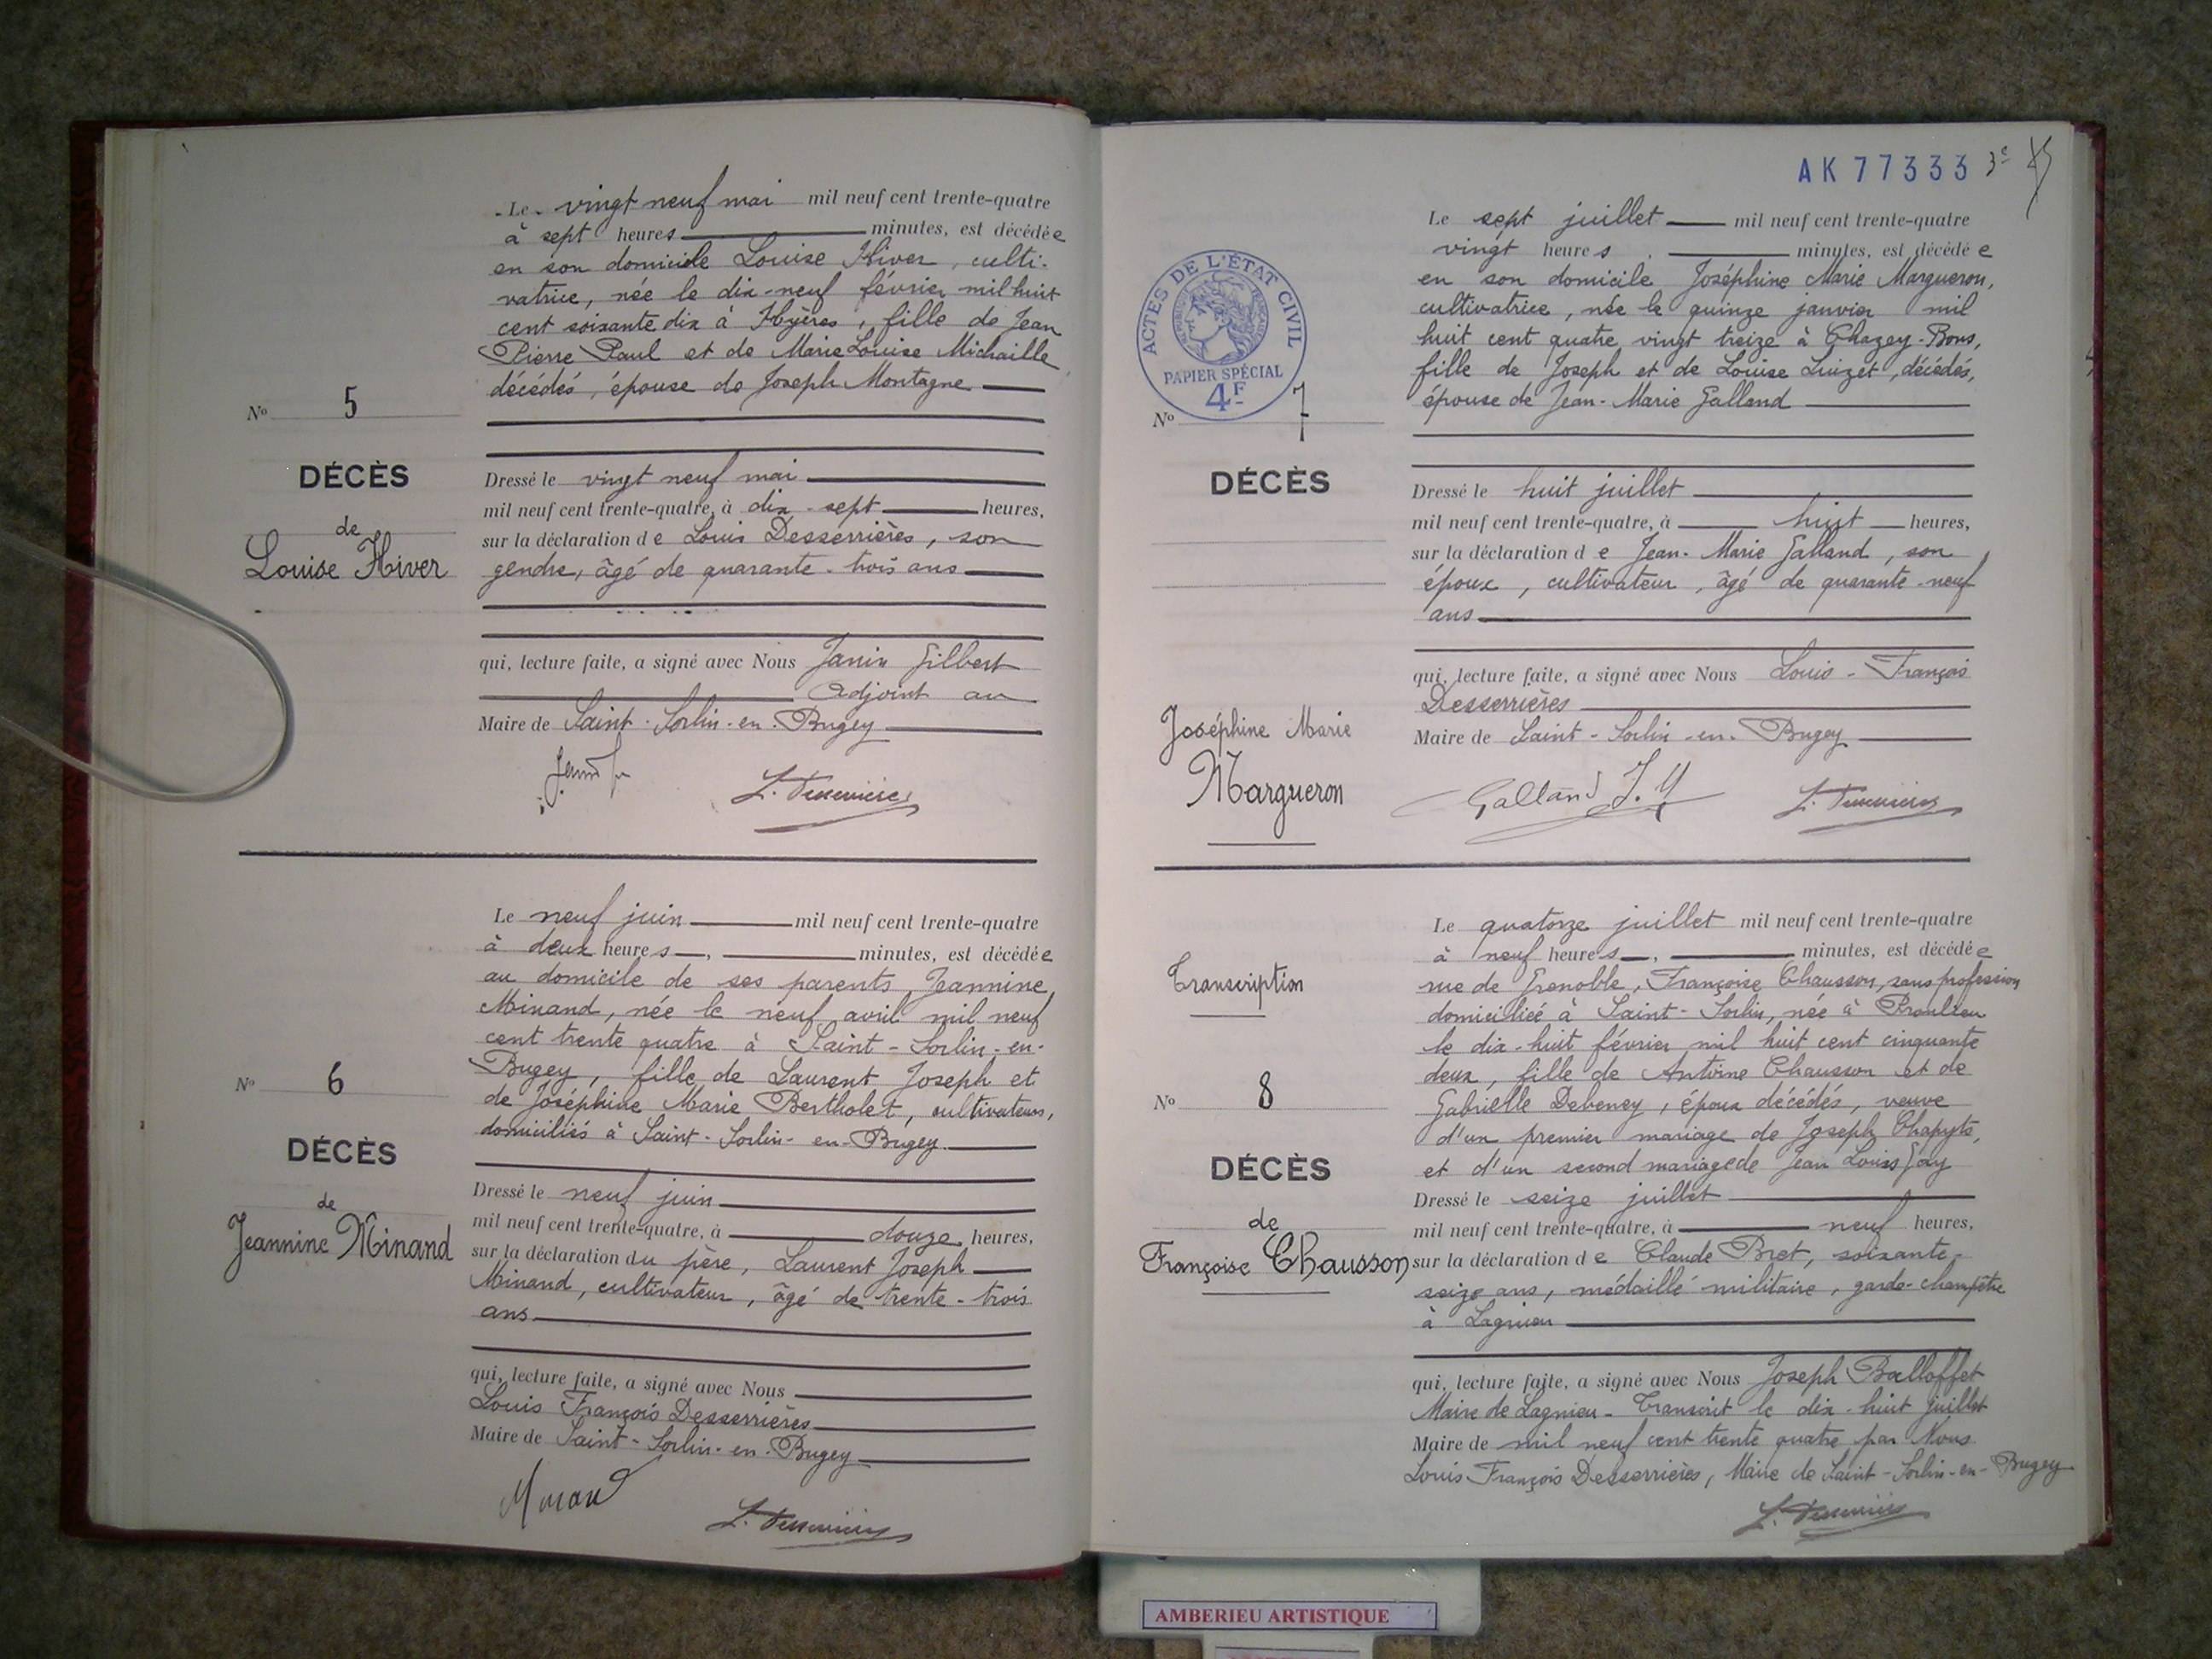 Le vingt neuf mai mil neuf cent trente-quatre
à sept heures minutes, est décédée
en son domicile Louise Hiver, culti-
vatrice, née le dix-neuf février mil huit
cent soixante dix à Hyères, fille de Jean
Pierre Paul et de Marie Louise Michaille
décédés, épouse de Joseph Montagne
No 5
DÉCÈS
de
Louise Hiver
Dressé le vingt neuf mai
mil neuf cent trente-quatre, à dix-sept heures,
sur la déclaration de Louis Desserrières, son
gendre, âgé de quarante-trois ans
qui, lecture faite, a signé avec Nous Janin Gilbert
adjoint au
Maire de Saint-Sorlin-en-Bugey
L. Desserrières
Le neuf juin mil neuf cent trente-quatre
à deux heures, minutes, est décédée
au domicile de ses parents, Jeannine
Minand, née le neuf avril mil neuf
cent trente quatre à Saint-Sorlin-en-
Bugey, fille de Laurent Joseph et
de Joséphine Marie Bertholet, cultivateurs,
domiciliés à Saint-Sorlin-en-Bugey
No 6
DÉCÈS
de
Jeannine Minand
Dressé le neuf juin
mil neuf cent trente-quatre, à douze heures,
sur la déclaration du père, Laurent Joseph
Minand, cultivateur, âgé de trente-trois
ans
qui, lecture faite, a signé avec Nous
Louis François Desserrières
Maire de Saint-Sorlin-en-Bugey
Minand
L. Desserrières
AK 77333 3e
ACTES DE L'ÉTAT CIVIL
PAPIER SPÉCIAL
4F
Le sept juillet mil neuf cent trente-quatre
vingt heures minutes, est décédée
en son domicile Joséphine Marie Margueron,
cultivatrice, née le quinze janvier mil
huit cent quatre vingt treize à Chazey-Bons,
fille de Joseph et de Louise Luizet, décédés,
épouse de Jean-Marie Galland
No 7
DÉCÈS
Joséphine Marie
Margueron
Dressé le huit juillet
mil neuf cent trente-quatre, à huit heures,
sur la déclaration de Jean-Marie Galland, son
époux, cultivateur, âgé de quarante-neuf
ans
qui, lecture faite, a signé avec Nous Louis-François
Desserrières
Maire de Saint-Sorlin-en-Bugey
Galland J. M
L. Desserrières
Transcription
Le quatorze juillet mil neuf cent trente-quatre
à neuf heures, minutes, est décédée
rue de Grenoble, Françoise Chausson, sans profession
domiciliée à Saint-Sorlin, née à Proulieu
le dix-huit février mil huit cent cinquante
deux, fille de Antoine Chausson et de
Gabrielle Debeney, époux décédés, veuve
d'un premier mariage de Joseph Chapuis,
et d'un second mariage de Jean Louis Goy
No 8
DÉCÈS
de
Françoise Chausson
Dressé le seize juillet
mil neuf cent trente-quatre, à neuf heures,
sur la déclaration de Claude Bret, soixante-
seize ans, médaillé militaire, garde-champêtre
à Lagnieu
qui, lecture faite, a signé avec Nous Joseph Balloffet
Maire de Lagnieu - Transcrit le dix-huit juillet
Maire de mil neuf cent trente quatre par Nous
Louis François Desserrières, Maire de Saint-Sorlin-en-Bugey
L. Desserrières
AMBERIEU ARTISTIQUE